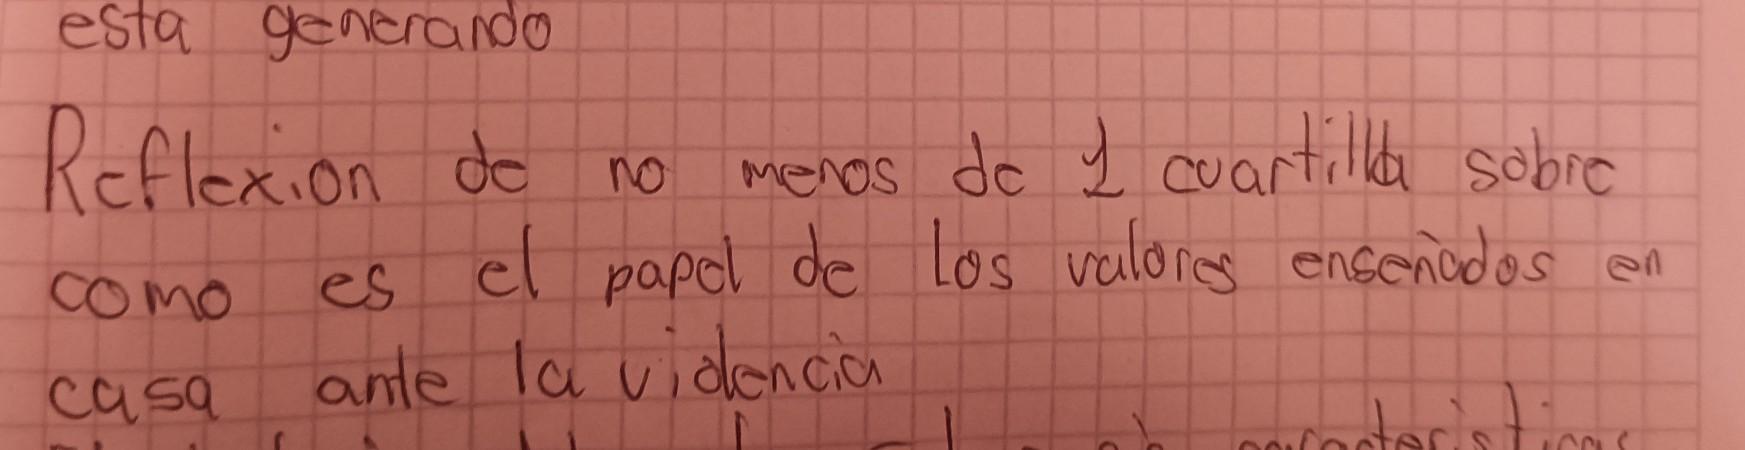 esta generando
Reflexion de no menos de 1 cuartilla sobre
como es el papel de los valores enseñados en
casa ante la violencia
caracteristicas